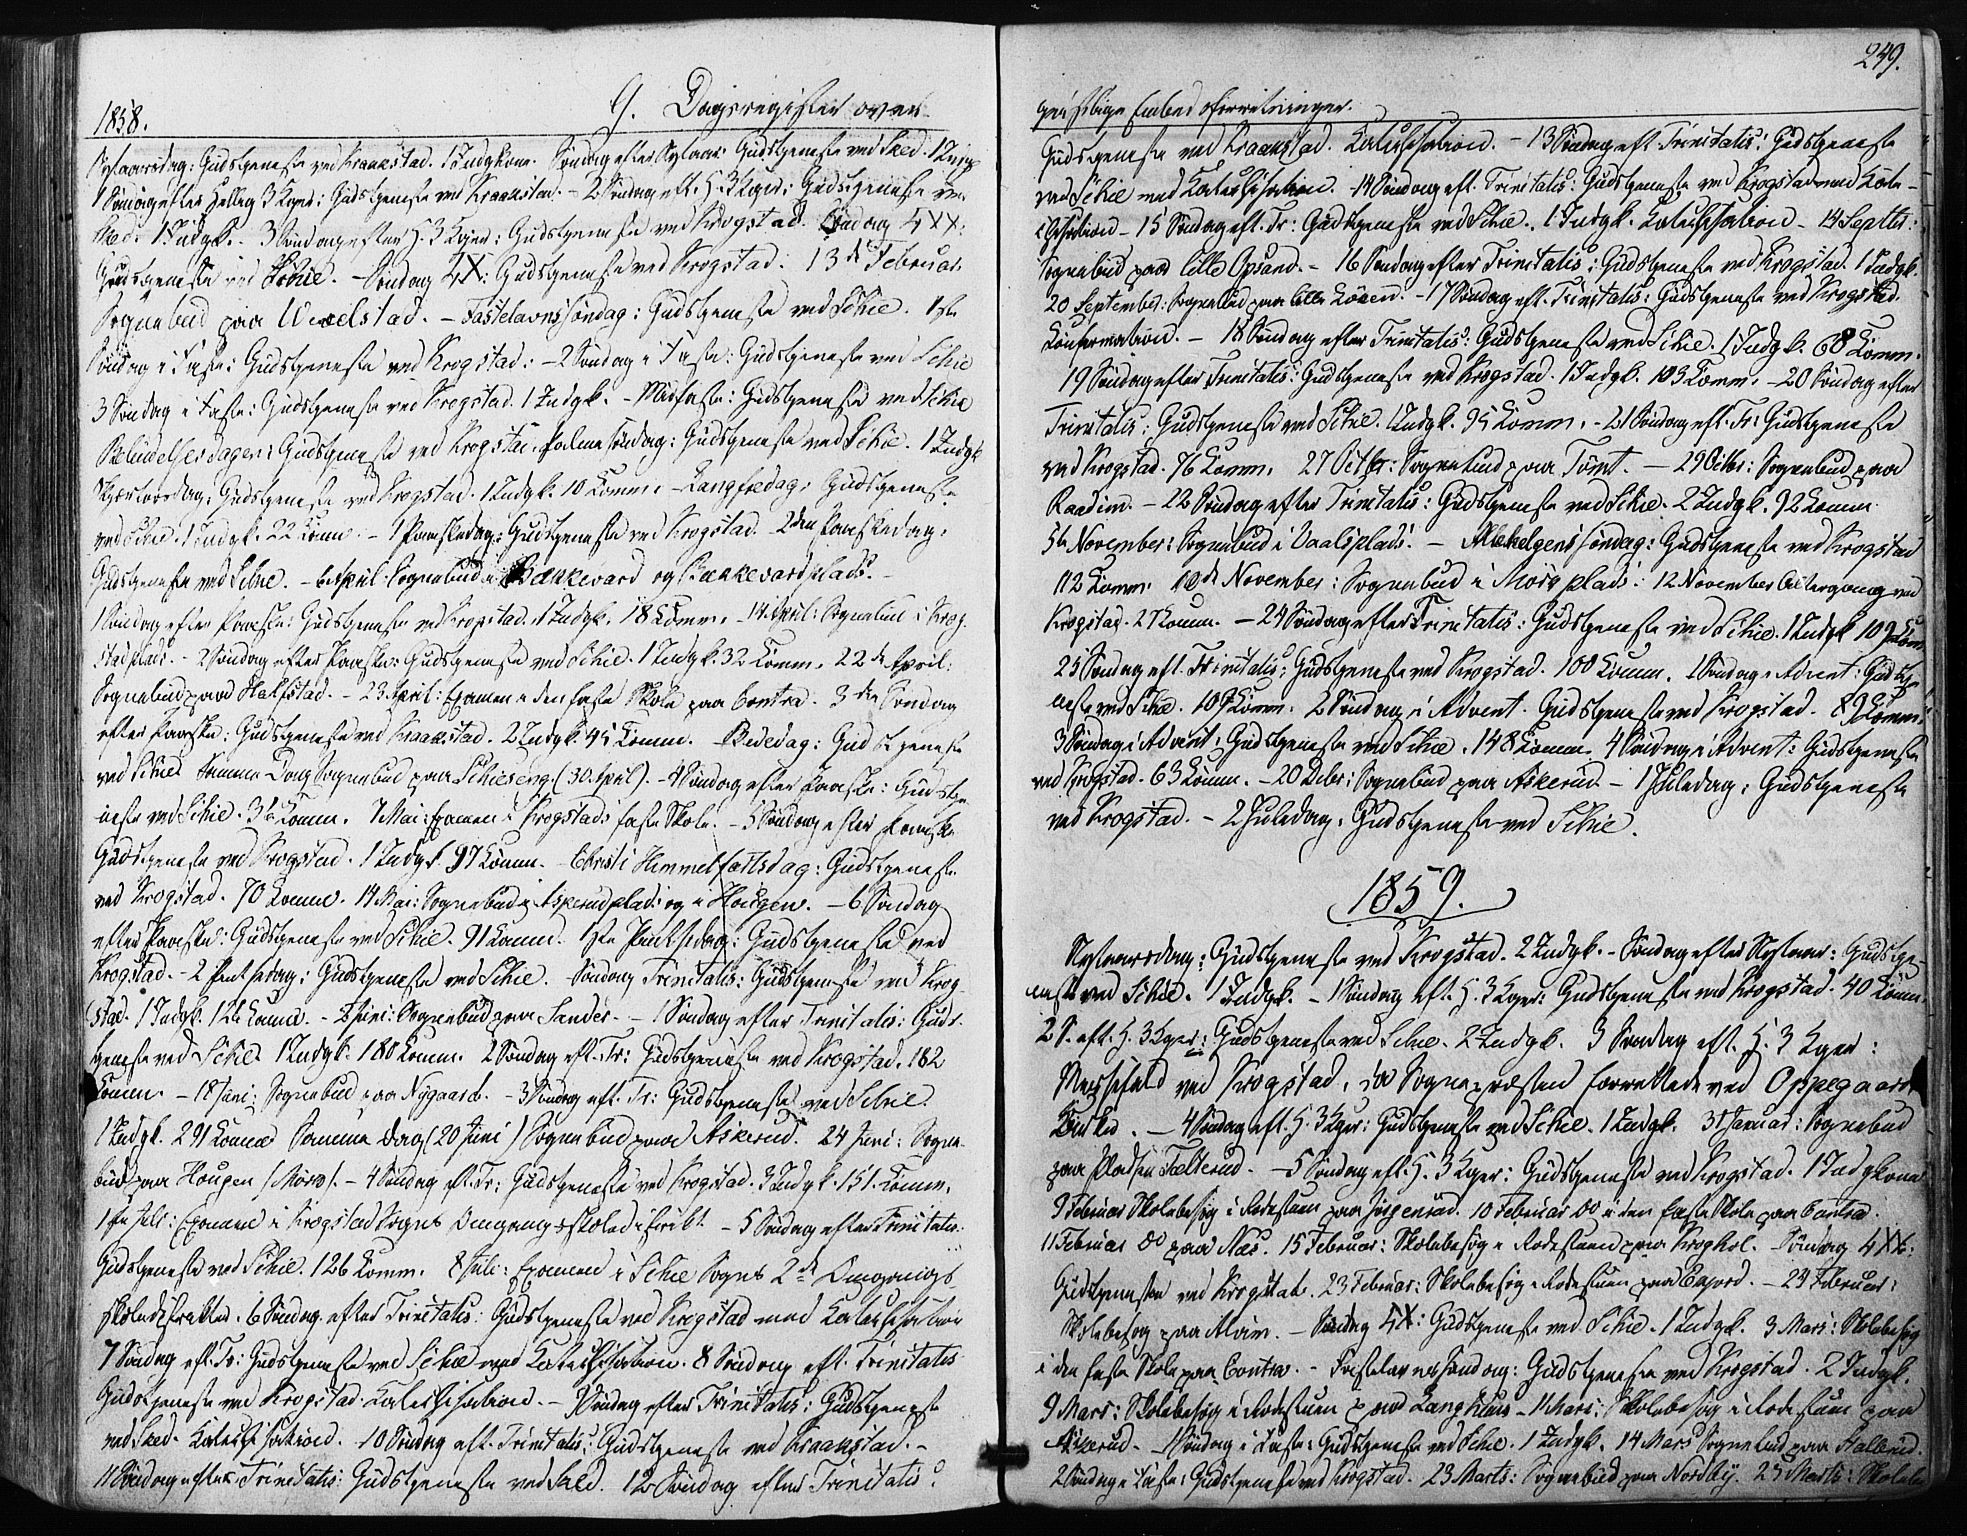 1858.
9. Dagsregister over
Nytaarsdag: Gudstjeneste ved Kraakstad. 1 Indgkone. Søndag efter Nytaar: Gudstjeneste ved Skie. 1 Indg
1 Søndag efter Hellig 3 Kger: Gudstjeneste ved Kraakstad. - 2 Søndag eft. H. 3 Kger: Gudstjeneste ved
Skie. 1 Indgk. 3 Søndag efter H. 3 Kger: Gudstjeneste ved Krogstad. Søndag 7XX:
Gudstjeneste ved Schie. - Søndag 6X: Gudstjeneste ved Krogstad: 13de Februar
Sognebud paa . - Fastelavnssøndag: Gudstjeneste ved Schie. 1ste
Søndag i Faste: Gudstjeneste ved Krogstad: - 2 Søndag i Faste: Gudstjeneste ved Schie
3 Søndag i Faste: Gudstjeneste ved Krogstad. 1 Indgk. - Midfaste: Gudstjeneste ved Schie
Bebudelsesdagen: Gudstjeneste ved Krogstad. Palmesøndag: Gudstjeneste ved Schie. 1 Indgk
Skjærtorsdag: Gudstjeneste ved Krogstad. 1 Indgk. 10 Komm. - Langfredag: Gudstjeneste
ved Schie. 1 Indgk. 22 Komm. - 1 Paaskedag: Gudstjeneste ved Krogstad. 2den Paaskedag:
Gudstjeneste ved Schie. - 6 April: Sognebud i Bækkevard og Bækkevardplads. -
1 Søndag efter Paaske: Gudstjeneste ved Krogstad. 1 Indgk. 18 Komm. - 14 April: Sognebud i Krog-
stadplads. - 2 Søndag efter Paaske: Gudstjeneste ved Schie. 1 Indgk. 32 Komm. 22de April:
Sognebud paa Halfstad. - 23 April: Examen i den faste Skole paa Contra. 3die Søndag
efter Paaske: Gudstjeneste ved Kraakstad. 2 Indgk. 45 Komm. Bededag: Gudstjeneste
ved Schie. Samme Dag Sognebud paa Schieseng. (30. April). - 4 Søndag efter Paaske: Gudstje
neste ved Schie. 36 Komm. 7 Mai: Examen i Krogstads faste Skole. - 5 Søndag efter Paaske
Gudstjeneste ved Krogstad. 1 Indgk. 97 Komm. - Christi Himmelfartsdag: Gudstjeneste
ved Krogstad. 70 Komm. 14 Mai: Sognebud i Askerudplads og i Haugen. - 6 Søndag
efter Paaske: Gudstjeneste ved Schie. 91 Komm. 1ste Pintsedag: Gudstjeneste ved
Krogstad. - 2 Pintsedag: Gudstjeneste ved Schie. Søndag Trinitatis: Gudstjeneste ved Krog
stad. 1 Indgk. 124 Komm. - Juni: Sognebud paa Sander. - 1 Søndag efter Trinitatis: Guds-
tjeneste ved Schie. 1 Indgk. 180 Komm. 2 Søndag eft. Tr: Gudstjeneste ved Krogstad. 182
Komm. - 18 Juni: Sognebud paa Nygaard. - 3 Søndag eft. Tr: Gudstjeneste ved Schie.
1 Indgk. 291 Komm. Samme Dag (20 Juni) Sognebud paa Askerud. 24 Juni: Sogne-
bud paa Haugen (Moss). - 4 Søndag eft. Tr: Gudstjeneste ved Krogstad. 3 Indgk. 151. Komm.
1ste Juli: Examen i Krogstad Sogns Omgangsskoledistrikt. - 5 Søndag efter Trinitatis:
Gudstjeneste ved Schie. 126 Komm. 8 Juli: Examen i Schie Sogns 2de Omgangs-
skoledistrikter. 6 Søndag efter Trinitatis: Gudstjeneste ved Krogstad med Katechisation
7 Søndag eft. Tr: Gudstjeneste ved Schie med Katechisation. 8 Søndag eft. Trinitatis
Gudstjeneste ved Krogstad. Katechisation. - 9 Søndag efter Trinitatis: Gudstjeneste
ved Skie. Katechisation. - 10 Søndag eft. Trinitatis: Gudstjeneste ved Kraakstad. -
11 Søndag efter Trinitatis: Gudstjeneste ved Skie. 12 Søndag efter Trinitatis:
249.
geistlige Embedsforretninger.
Gudstjeneste ved Kraakstad. Katechisation. - 13 Søndag eft. Trinitatis: Gudstjeneste
ved Schie med Katechisation. 14 Søndag eft. Trinitatis: Gudstjeneste ved Krogstad med Kate-
chisation - 15 Søndag eft. Tr: Gudstjeneste ved Schie. 1 Indgk. Katechisation - 14 Septbr:
Sognebud paa lille Opsand. - 16 Søndag efter Trinitatis: Gudstjeneste ved Krogstad. 1 Indgk.
20 September: Sognebud paa lille . - 17 Søndag eft. Trinitatis: Gudstjeneste ved Krogstad.
Konfirmation. - 18 Søndag efter Trinitatis: Gudstjeneste ved Schie. 1 Indgk. 68 Komm.
19 Søndag efter Trinitatis: Gudstjeneste ved Krogstad. 1 Indgk. 103 Komm. - 20 Søndag efter
Trinitatis: Gudstjeneste ved Schie. 1 Indgk. 95 Komm. - 21 Søndag eft. Tr: Gudstjeneste
ved Krogstad. 76 Komm. 27 Octbr: Sognebud paa Tomt. - 29 Octbr: Sognebud paa
. - 22 Søndag efter Trinitatis: Gudstjeneste ved Schie. 2 Indgk. 92 Komm.
5te November: Sognebud i Vaalsplads. - Allehelgens Søndag: Gudstjeneste ved Krogstad
112 Komm. 10de November: Sognebud i plads: 12 November Altergang ved
Krogstad. 27 Komm. - 24 Søndag efter Trinitatis: Gudstjeneste ved Schie. 1 Indgk 109 Kom.
25 Søndag eft. Trinitatis: Gudstjeneste ved Krogstad. 100 Komm. 1 Søndag i Advent: Gudstje
neste ved Schie. 109 Komm. 2 Søndag i Advent. Gudstjeneste ved Krogstad. 89 Komm.
3 Søndag i Advent: Gudstjeneste ved Schie. 148 Komm. 4 Søndag i Advent: Gudstjeneste
ved Krogstad. 63 Komm. - 20 Decbr: Sognebud paa Askerud - 1 Juledag: Gudstjeneste
ved Krogstad. - 2 Juledag: Gudstjeneste ved Schie.
1859.
Nytaarsdag: Gudstjeneste ved Krogstad. 2 Indgk. - Søndag efter Nytaar: Gudstje-
neste ved Schie. 1 Indgk. - 1 Søndag eft. H. 3 Kger: Gudstjeneste ved Krogstad. 40 Komm.
2 S. eft. H. 3 Kger: Gudstjeneste ved Schie. 2 Indgk. 3 Søndag eft. H. 3 Kger:
Messefald ved Krogstad, da Sognepræsten forrettede ved Oppegaard
Kirke. - 4 Søndag eft. H. 3 Kger: Gudstjeneste ved Schie. 1 Indgk. 31 Januar: Sognebud
paa Pladsen Fælterud. - 5 Søndag eft. H. 3 Kger: Gudstjeneste ved Krogstad. 1 Indgkone
9 Februar Skolebesøg i Rodestuen paa Jørgenrud. 10 Februar Do i den faste Skole paa Contra.
11 Februar Do paa Næs. 15 Februar: Skolebesøg i Rodestuen paa Kroghol. Søndag 7XX:
Gudstjeneste ved Krogstad. 23 Februar: Skolebesøg i Rodestuen paa . - 24 Februar:
Skolebesøg paa . - Søndag 6X: Gudstjeneste ved Schie. 1 Indgk. 3 Mars: Skolebesøg
i den faste Skole paa Contra. - Fastelavnssøndag: Gudstjeneste ved Krogstad. 2 Indgk.
9 Mars: Skolebesøg i Rodestuen paa Langhuus - 11 Mars: Skolebesøg i Rodestuen paa
Askerud. 1 Søndag i Faste: Gudstjeneste ved Schie. 1 Indgk. 14 Mars Sognebud paa .
2 Søndag i Faste: Gudstjeneste ved Krogstad. 23 Marts: Sognebud paa Nordby. 25 Marts: Skolebe